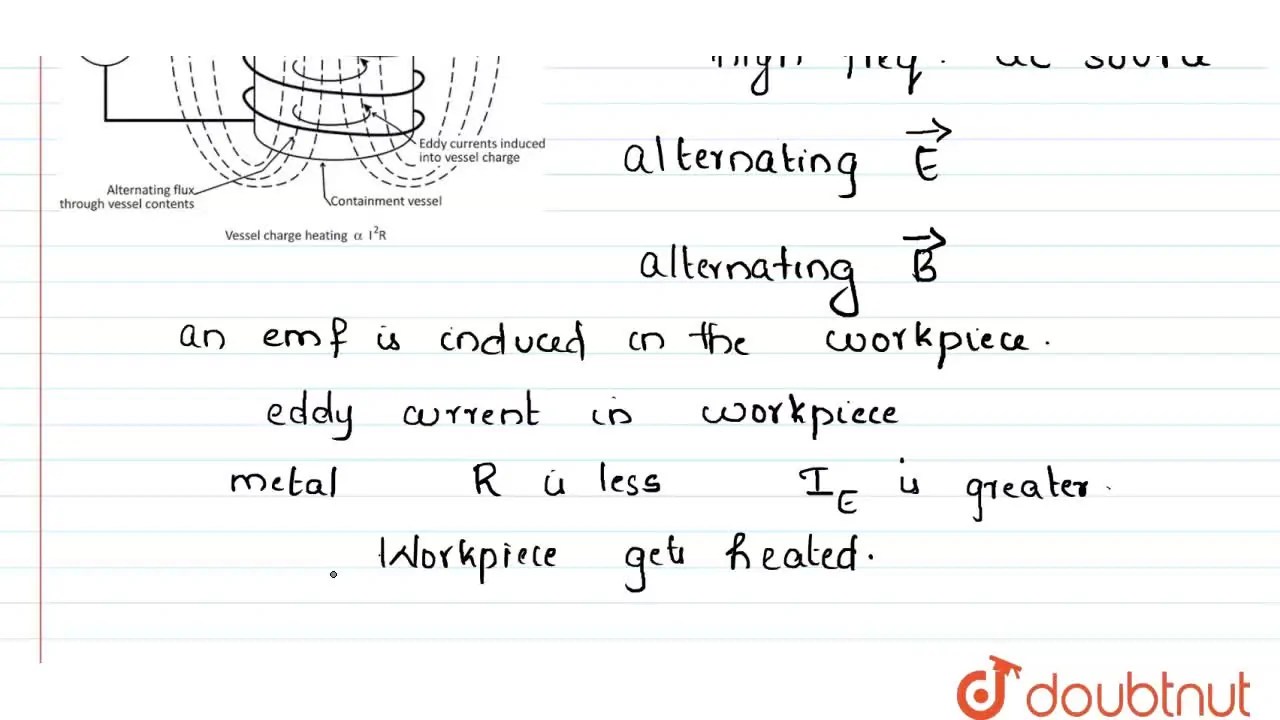 high freq. ac source
alternating E
Eddy currents induced
into vessel charge
Alternating flux
through vessel contents
Containment vessel
Vessel charge heating α I²R
alternating B
an emf is induced in the workpiece.
eddy current in workpiece
metal R is less I_E is greater.
Workpiece gets heated.
doubtnut